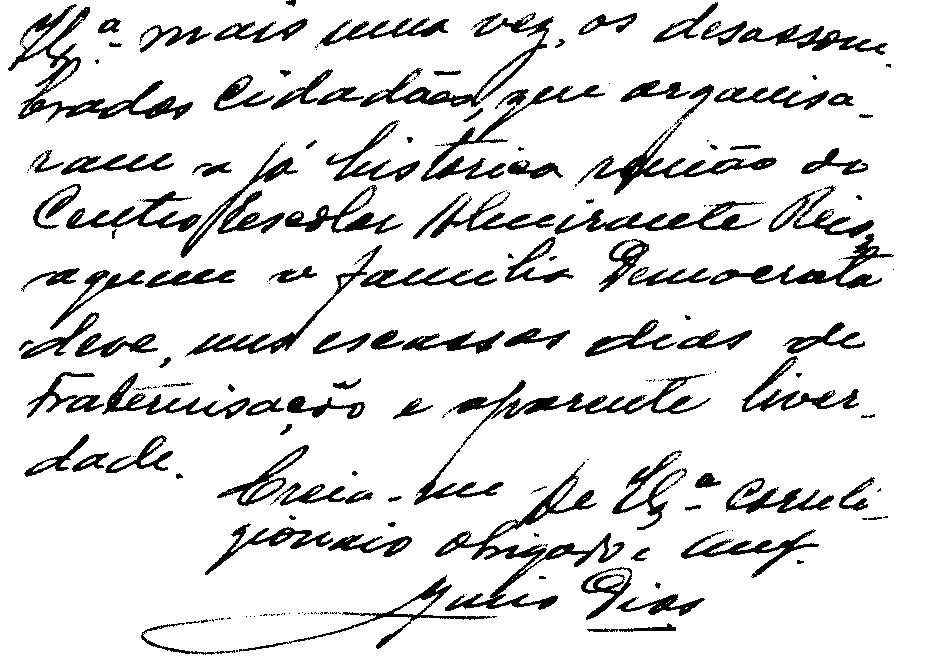 Ex.ª mais uma vez, os desassom-
brados Cidadãos, que organisa-
ram a já historica reunião do
Centro Escolar Almirante Reis,
aquem a familia Democrata
deve, uns escassos dias de
Fraternisação e aparente liver-
dade.
Creia-me De Ex.ª correli-
gionario obrigado e
Dias